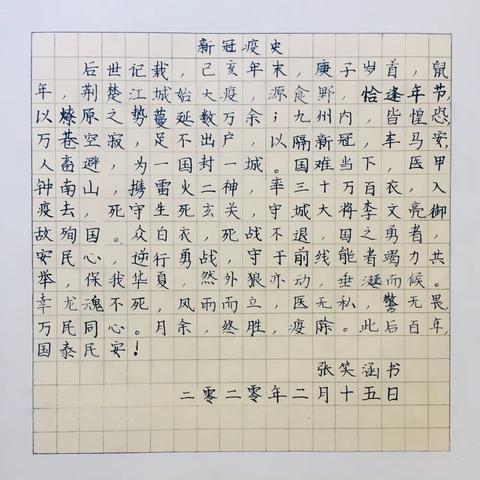 新冠疫史
后世记载，己亥年末，庚子岁首，鼠
年，荆楚江城始大疫，源愈野，恰逢年节，
以燎原之势蔓延数万余；九州内，皆惶恐，
万巷空寂，足不出户，以隔新冠，车马安，
人畜避，为一国封一城。国难当下，医甲
钟南山，携雷火二神，率三十万百衣，入
疫去，死守生死玄关，守城大将李文亮御
故殉国。众白衣，死战不退，国之勇者，
安民心，逆行勇战，守于前线能者竭力共
举，保我华夏，然外狼亦动，垂涎而候。
幸龙魂不死，风雨而立，医无私，警无畏
万民同心。月余，终胜，疫除。此后百年，
国泰民安！
张笑涵书
二零二零年二月十五日